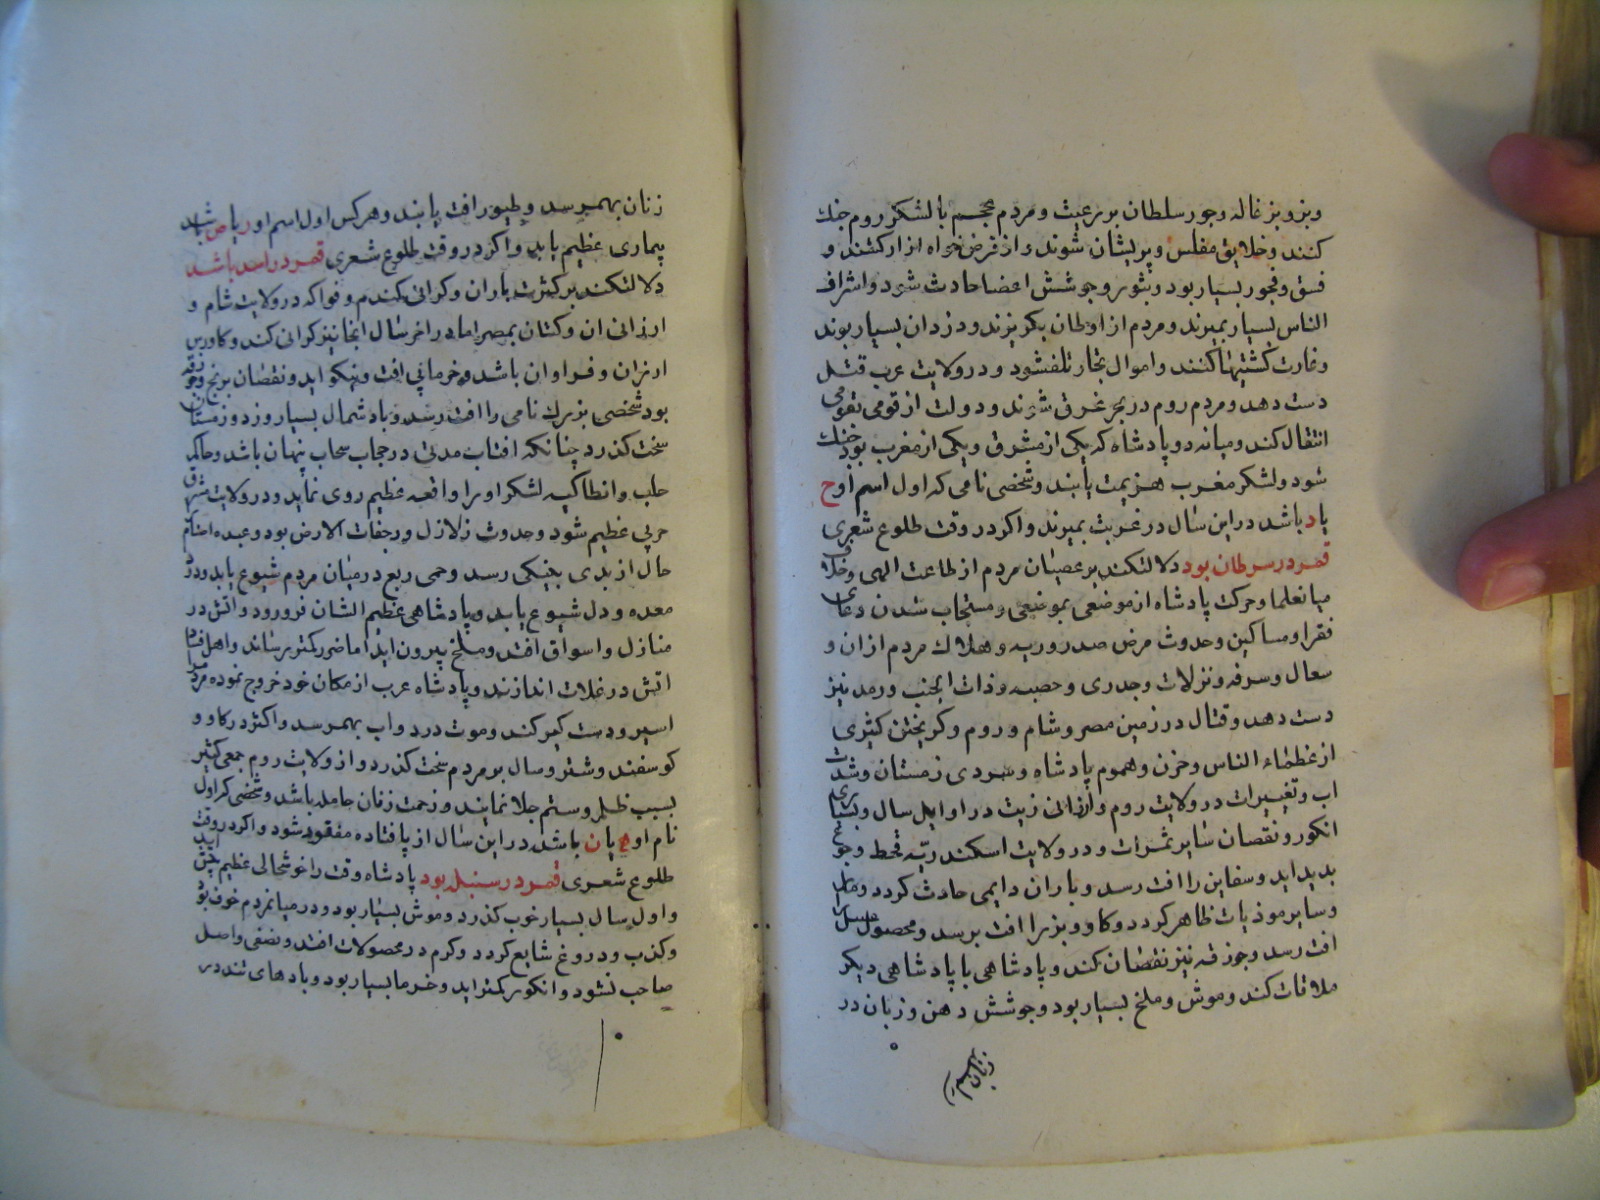 و بز و بزغاله وجور سلطان بر رعیت و مردم عجم با لشکر روم جنك
کنند و خلایق مفلس و پریشان شوند و از قرض خواه ازار کشند و
فسق و فجور بسیار بود و بثور و جوشش اعضا حادث شود و اشراف
الناس بسیار بمیرند و مردم از اوطان بکریزند و دزدان بسیار بوند
و غارت کشتیها کنند و اموال تجار تلف شود و در ولایت عرب قتل
دست دهد و مردم روم در بحر غرق شوند و دولت از قومی بقومی
انتقال کند و میانه دو پادشاه که یکی از مشرق و یکی از مغرب بود جنك
شود و لشکر مغرب هزیمت یابند و شخصی نامی که اول اسم او ح
یا د باشد در این سال در غربت بمیرند و اکر در وقت طلوع شعری
قمر در سرطان بود دلالت کند بر عصیان مردم از طاعت الهی و خلاف
میان علما و حرکت پادشاه از موضعی بموضعی و مستجاب شدن دعای
فقرا و مساکین و حدوث مرض صدر و ریه و هلاك مردم از ان و
سعال و سرفه و نزلات و جدری و حصبه و ذات الجنب و رمد نیز
دست دهد و قتال در زمین مصر و شام و روم و کریختن کثیری
از عظماء الناس و حزن و هموم پادشاه و سردی زمستان و شدت
اب و تغییرات در ولایت روم و ارزانی زیت در اوایل سال و بسیاری
انکور و نقصان سایر ثمرات و در ولایت اسکندریه قحط و جوع
بدید اید و سفاین را افت رسد و باران دایمی حادث کردد و مار
و سایر موذیات ظاهر کردد و کاو و بز را افت برسد و محصول عسل
افت رسد و جوزقه نیز نقصان کند و پادشاهی با پادشاهی دیکر
ملاقات کند و موش و ملخ بسیار بود و جوشش دهن و زبان در
زنان بهمرسد
زنان بهمرسد و طیور افت یابند و هر کس اول اسم او ر یا ص باشد
بیماری عظیم یابد و اکر در وقت طلوع شعری قمر در اسد باشد
دلالت کند بر کثرت باران و کرانی کندم و فواکه در ولایت شام و
ارزانی ان و کتان بمصر اما در اخر سال انجا نیز کرانی کند و کاورس
ارزان و فراوان باشد و خرما بی افت و نیکو اید و نقصان برنج و جوزقه
بود شخصی بزرك نامی را افت رسد و باد شمال بسیار وزد و زمستان
سخت کذرد چنانکه افتاب مدتی در حجاب سحاب پنهان باشد و حاکم
حلب و انطاکیه لشکر او را واقعه عظیم روی نماید و در ولایت مشرق
حربی عظیم شود و حدوث زلازل و رجفات الارض بود و عبده اصنام
حال از بدی بنیکی رسد و حمی ربع در میان مردم شیوع یابد و درد
معده و دل شیوع یابد و پادشاهی عظیم الشان فرو رود و اتش در
منازل و اسواق افتد و ملخ بیرون اید اما ضرر کمتر رساند و اهل فساد
اتش در غلات اندازند و پادشاه عرب از مکان خود خروج نموده مردم
اسیر و دست کیر کند و موت در دواب بهمرسد و اکثر در کاو و
کوسفند و شتر و سال بر مردم سخت کذرد و از ولایت روم جمعی کثیر
بسبب ظلم و ستم جلا نمایند و زحمت زنان حامله باشد و شخصی که اول
نام او ع یا ن باشد در این سال از پا فتاده مفقود شود و اکر در وقت
طلوع شعری قمر در سنبله بود پادشاه وقت را خوشحالی عظیم
و اول سال بسیار خوب کذرد و موش بسیار بود و در میان مردم خوف بود
و کذب و دروغ شایع کردد و کرم در محصولات افتد و نضفی واصل
صاحب نشود و انکور کمتر اید و خرما بسیار بود و بادهای تند در